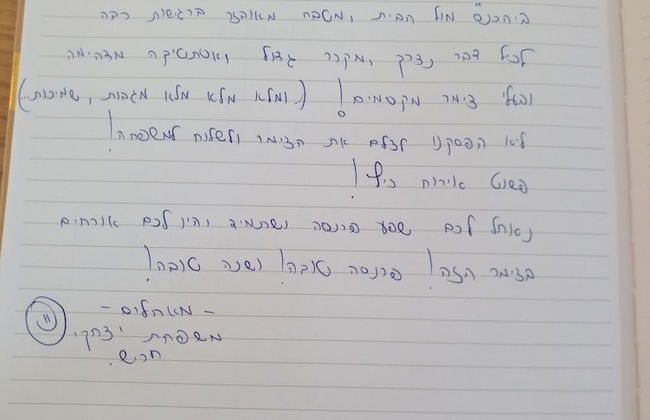 ביהכנ"ס מול הבית, ומטבח מאובזר ברגישות רבה
לכל דבר נצרך, ומקרר גדול, ואסתטיקה מדהימה
ובעלי צימר מקסימים! (ומלא מלא מלא מגבות, שמיכות...)
לא הפסקנו לצלם את הצימר ולשלוח למשפחה!
פשוט אירוח כיף!
נאחל לכם שפע פרנסה ושתמיד יהיו לכם אורחים
בצימר הזה! פרנסה טובה! ושנה טובה!
- מאחלים -
משפחת יצחקי.
חריש.